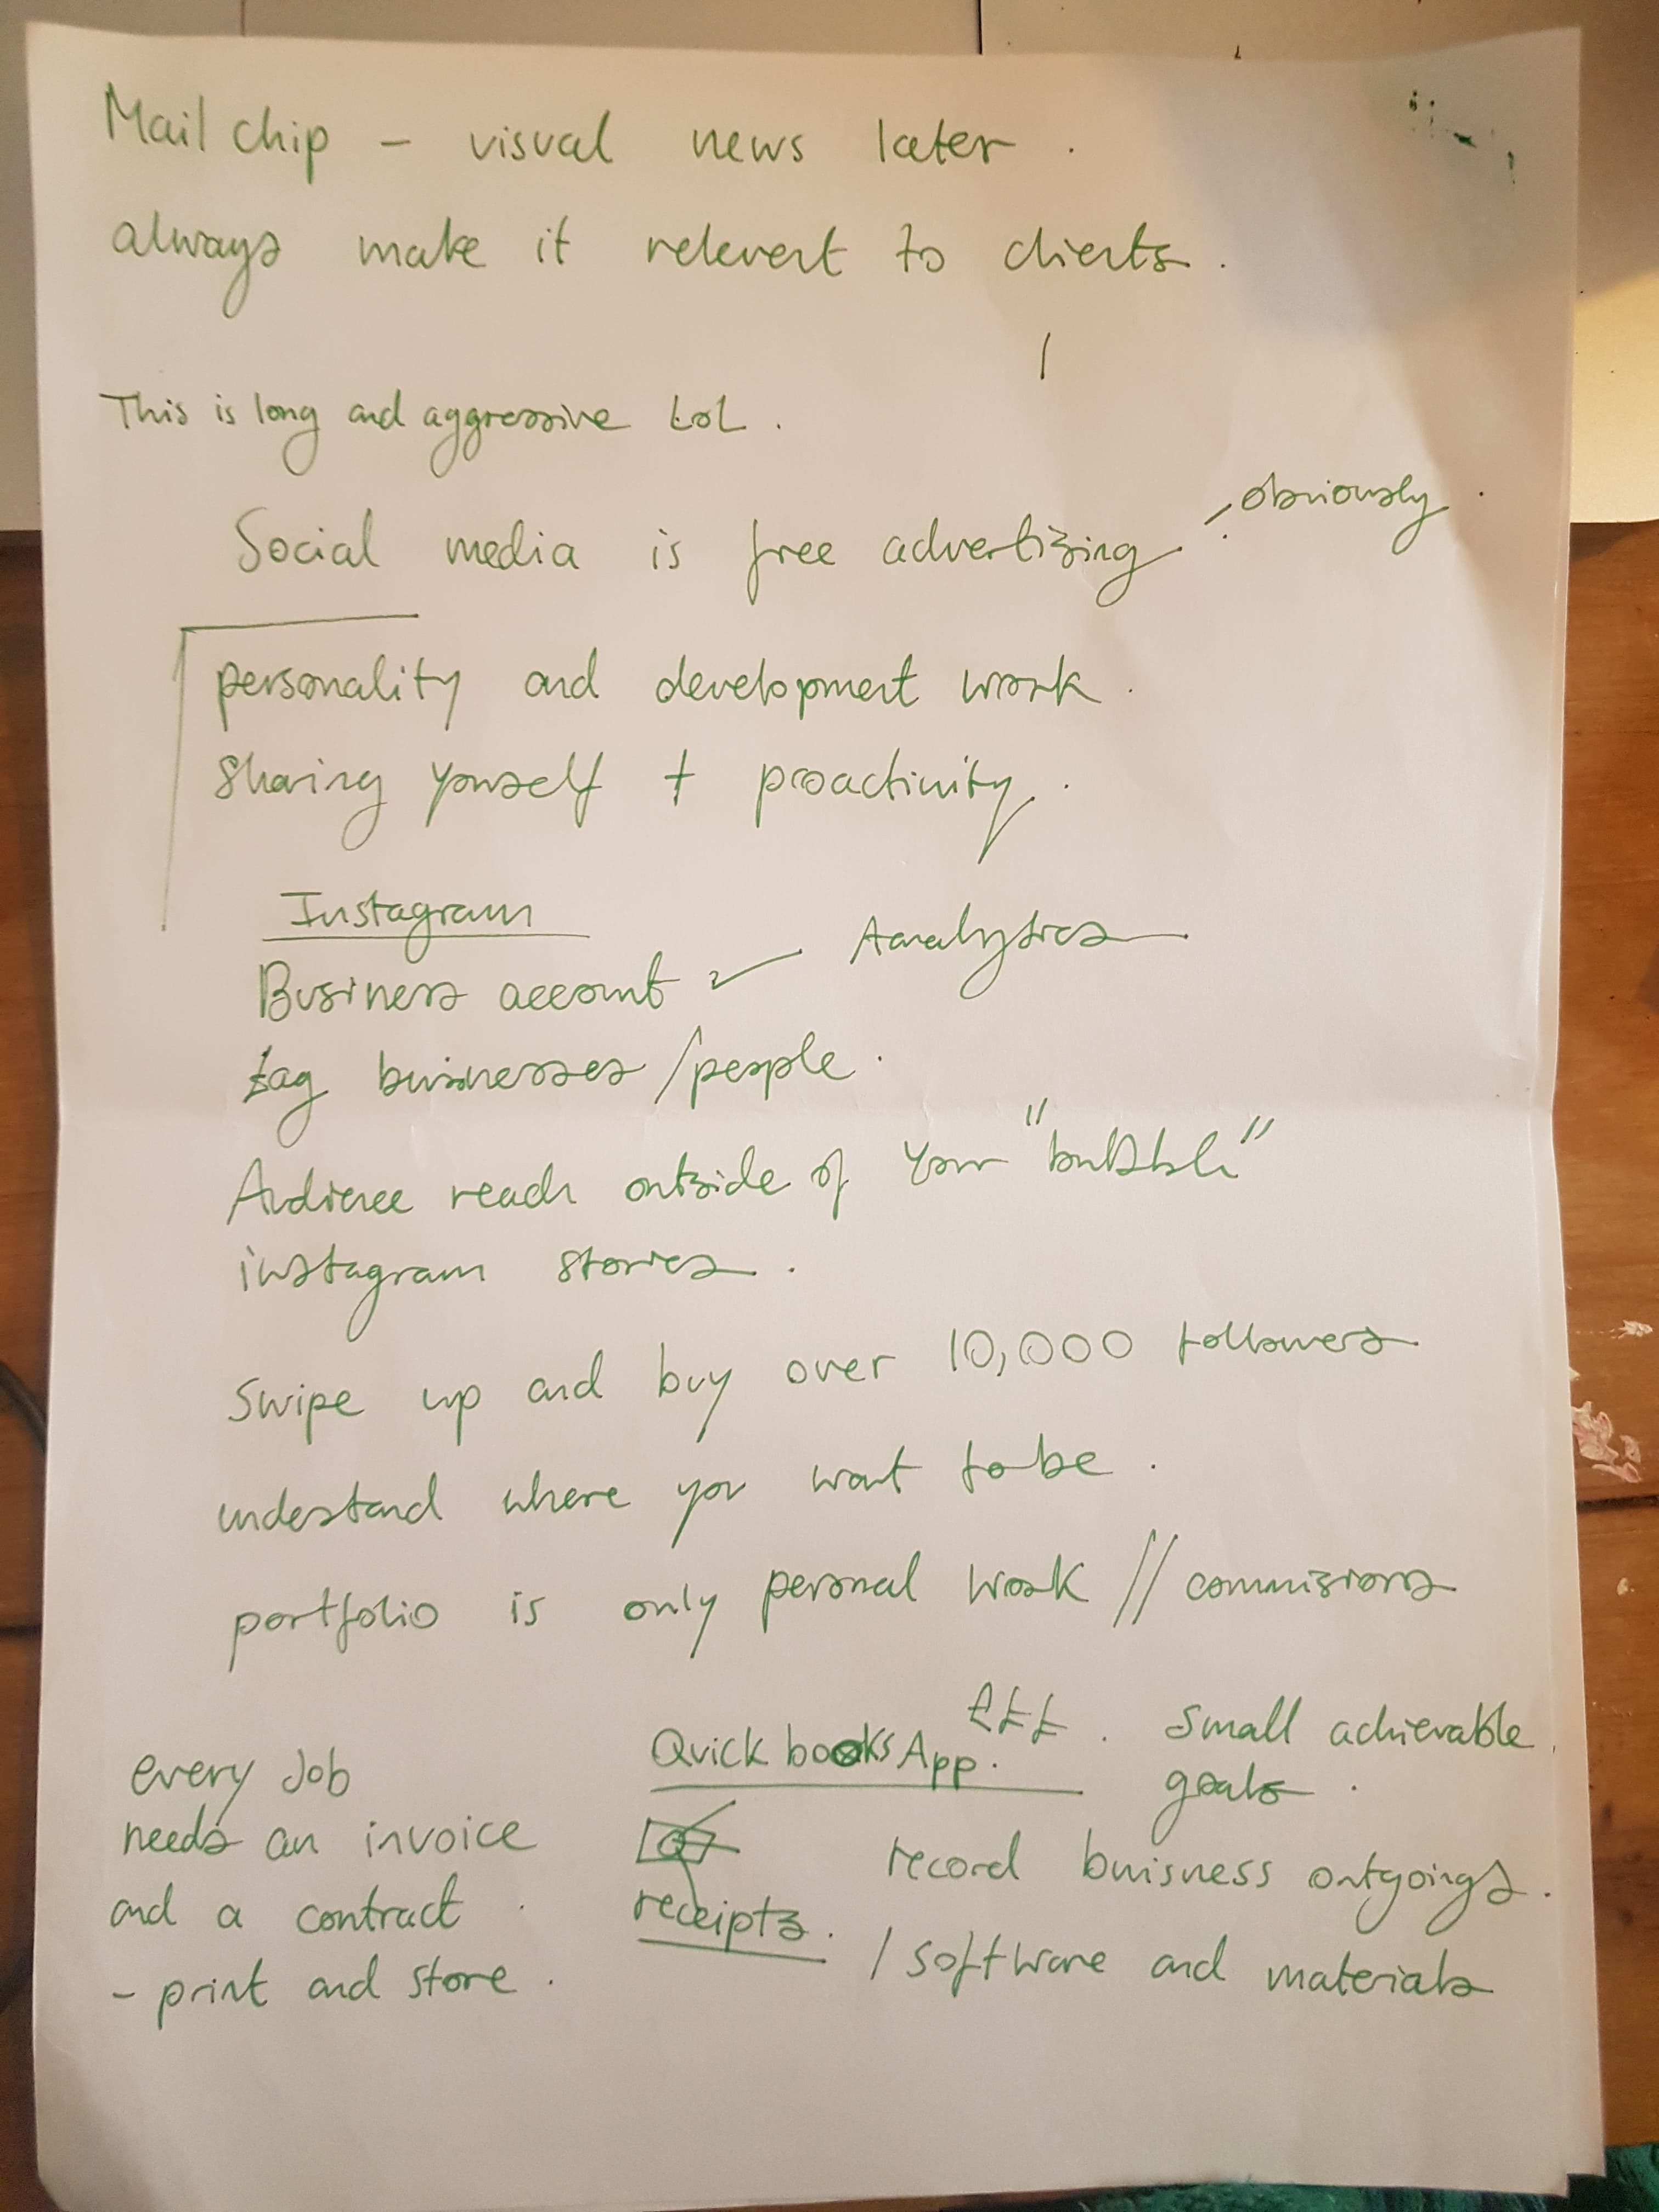 Mail chip - visual news later.
always make it relevert to clients.
This is long and aggressive LoL.
Social media is free advertizing. obviously.
personality and development work.
sharing yourself + proactivity.
Instagram
Business account ✓ Analytics
tag businesses / people.
Audience reach outside of your "bubble"
instagram stories.
Swipe up and buy over 10,000 followers
undestand where you want to be.
portfolio is only personal work // commisions
every Job
needs an invoice
and a contract.
- print and store.
Quick books App. £££.
receipts.
small achievable
goals.
record buisness outgoings.
/ software and materials